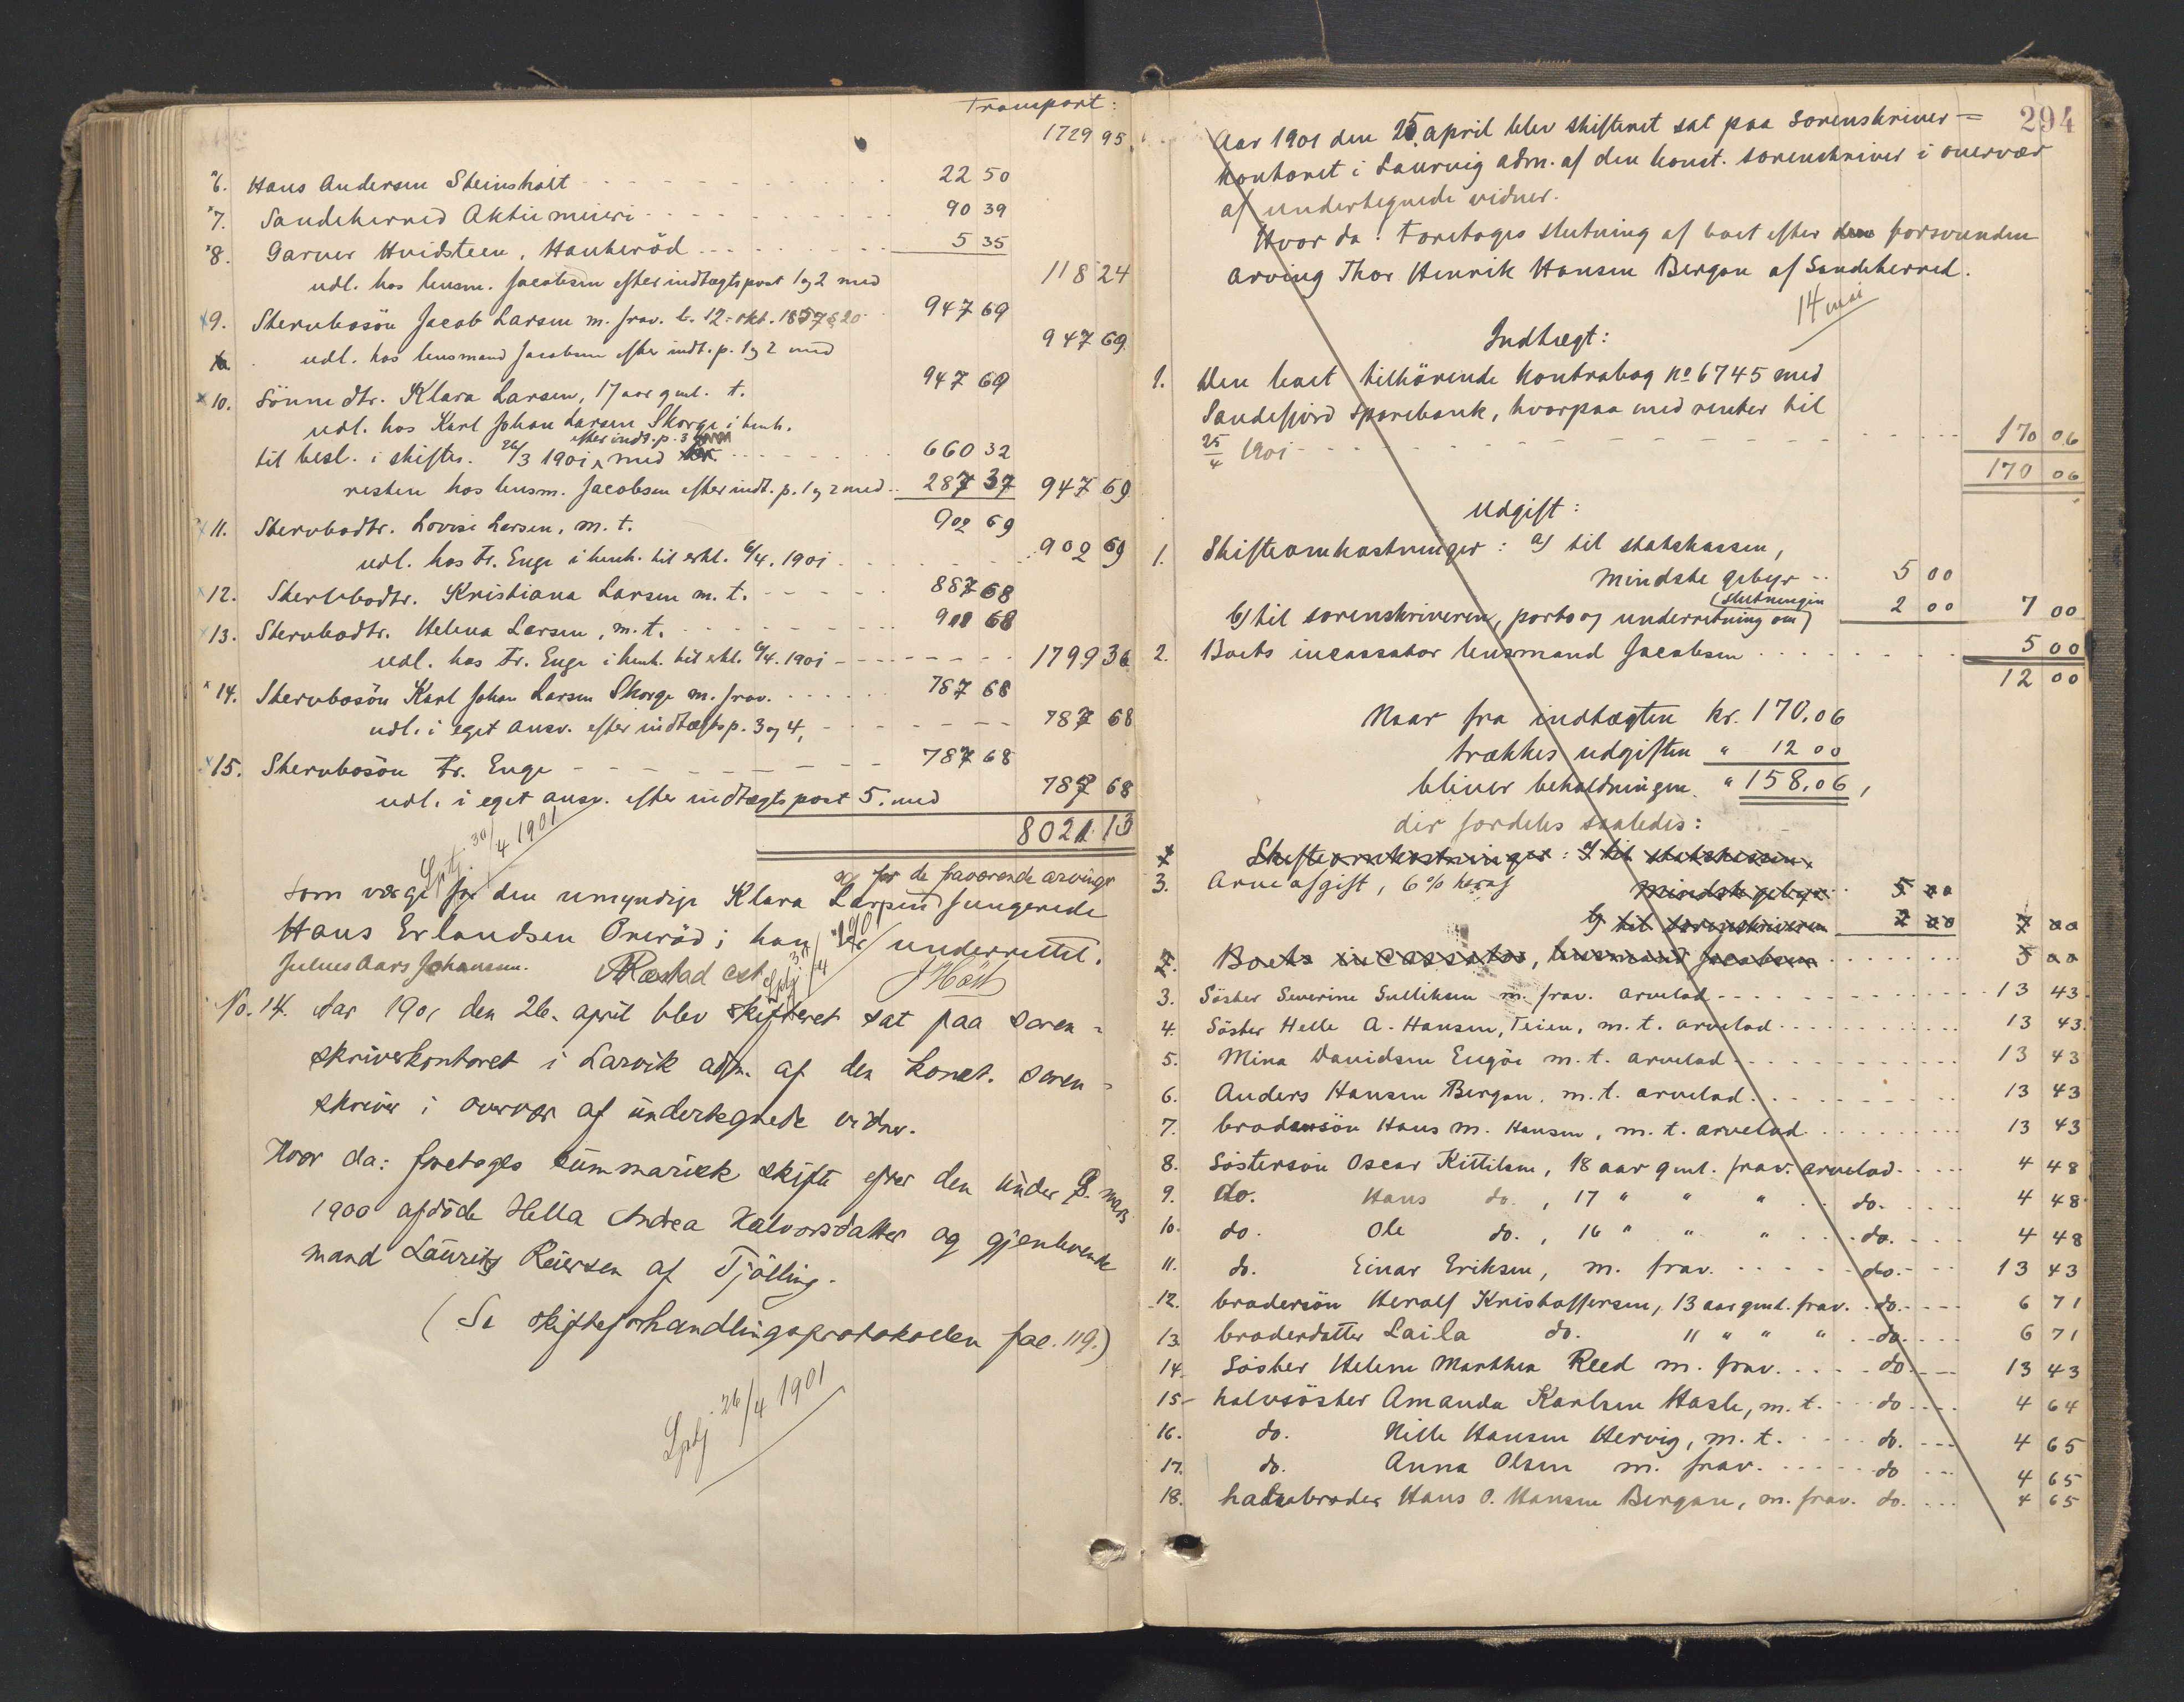 Transport:
1729 95
6. Hans Andersen Steinsholt 22 50
7. Sandeherred Aktiemeieri 90 39
8. Garver Hvidsteen, Haukeröd 5 35
udl. hos lensm. Jacobsen efter indtægtspost 1 og 2 med 118 24
9. Stervbosön Jacob Larsen m. frav. 947 69
udl. hos lensmand Jacobsen efter indt. p. 1 og 2 med 947 69
10. Sönnedtr. Klara Larsen, 17 aar gml. t. 947 69
udl. hos Karl Johan Larsen Skorge i henh.
efter indt. p. 3
til besl. i skifter. 26/3 1901 med 660 32
resten hos lensm. Jacobsen efter indt. p. 1 og 2 med 287 37 947 69
11. Stervbodtr. Lovise Larsen, m. t. 902 69
udl. hos Fr. Enge i henh. til erkl. 6/4. 1901 902 69
12. Stervbodtr. Kristiana Larsen m. t. 887 68
13. Stervbodtr. Helena Larsen, m. t. 911 68
udl. hos Fr. Enge i henh. til erkl. 6/4. 1901 1799 36
14. Stervbosön Karl Johan Larsen Skorge m. frav. 787 68
udl. i eget ansv. efter indtægtsp. 3 og 4, 787 68
15. Stervbosön Fr. Enge 787 68
udl. i eget ansv. efter indtægtspost 5. med 787 68
8021 13
30/4 1901
og for de fraværende arvinger
Som værge for den umyndige Klara Larsen fungerede
Hans Erlandsen Omröd; han er underrettet.
Julius Aars Johansen. Rastad cst JHöst
No. 14. Aar 1901 den 26. april blev skifteret sat paa soren-
skriverkontoret i Larvik adm. af den konst. soren-
skriver i overvær af undertegnede vidner.
Hvor da: foretoges summarisk skifte efter den under 8. mars
1900 afdöde Hella Andrea Halvorsdatter og gjenlevende
mand Lauritz Reiersen af Tjölling.
(Se skifteforhandlingsprotokollen fol. 119.)
26/4 1901
294
Aar 1901 den 25. april blev skifteret sat paa sorenskriver=
kontoret i Laurvig adm. af den konst. sorenskriver i overvær
af undertegnede vidner.
Hvor da: Foretoges slutning af boet efter den forsvunden
arving Thor Henrik Hansen Bergan af Sandeherred.
14 mai
Indtægt:
1. Den boet tilhörende kontrabog No 6745 med
Sandefjord sparebank, hvorpaa med renter til
25/4 1901 170 06
170 06
Udgift:
1. Skifteomkostninger: a) til statskassen,
mindste gebyr 5 00
(slutningen
b) til sorenskriveren, porto og underretning om) 2 00 7 00
2. Boets incassator lensmand Jacobsen 5 00
12 00
Naar fra indtægten kr. 170,06
trækkes udgiften " 12 00
bliver beholdningen " 158,06,
der fordeles saaledes:
1. Skifteomkostninger: a) til statskassen,
3. Arveafgift, 6% heraf mindste gebyr 5 00
b) til sorenskriveren 2 00 7 00
2. Boets incassator, lensmand Jacobsen 5 00
3. Söster Severine Gulliksen m. frav. arvelod 13 43
4. Söster Helle A. Hansen, Teien, m. t. arvelod 13 43
5. Mina Davidsen Engöe m. t. arvelod 13 43
6. Anders Hansen Bergan, m. t. arvelod 13 43
7. brodersön Hans M. Hansen, m. t. arvelod 13 43
8. Söstersön Oscar Kittilsen, 18 aar gml. frav. arvelod 4 48
9. do. Hans do., 17 " " " do. 4 48
10. do. Ole do., 16 " " " do. 4 48
11. do. Einar Eriksen, m. frav. do. 13 43
12. brodersön Heralf Kristoffersen, 13 aar gml. frav. do. 6 71
13. broderdatter Laila do. 11 " " " do. 6 71
14. Söster Helene Marthea Reed m. frav. do 13 43
15- halvsöster Amanda Karlsen Hasle, m. t. do 4 64
16. do. Nille Hansen Hervig, m. t. do. 4 65
17. do. Anna Olsen m. frav. do 4 65
18. halvbroder Hans O. Hansen Bergan, m. frav. do. 4 65